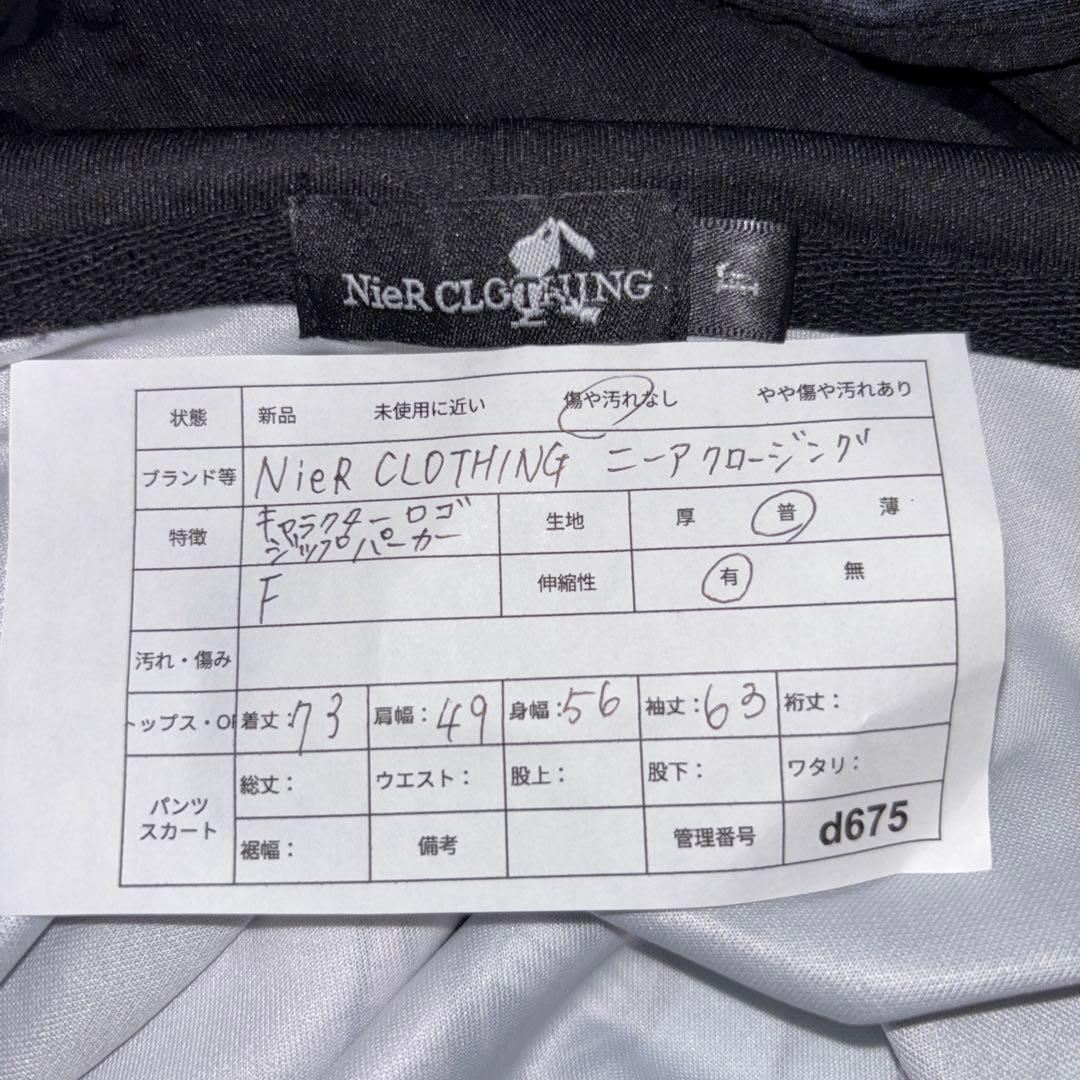 NieR CLOTHING
F
状態 新品 未使用に近い 傷や汚れなし やや傷や汚れあり
ブランド等 NieR CLOTHING ニーアクロージング
特徴 キャラクターロゴ
ジップパーカー
生地 厚 普 薄
F 伸縮性 有 無
汚れ・傷み
トップス・OP 着丈:73 肩幅:49 身幅:56 袖丈:63 裄丈:
パンツ
スカート
総丈: ウエスト: 股上: 股下: ワタリ:
裾幅: 備考 管理番号 d675